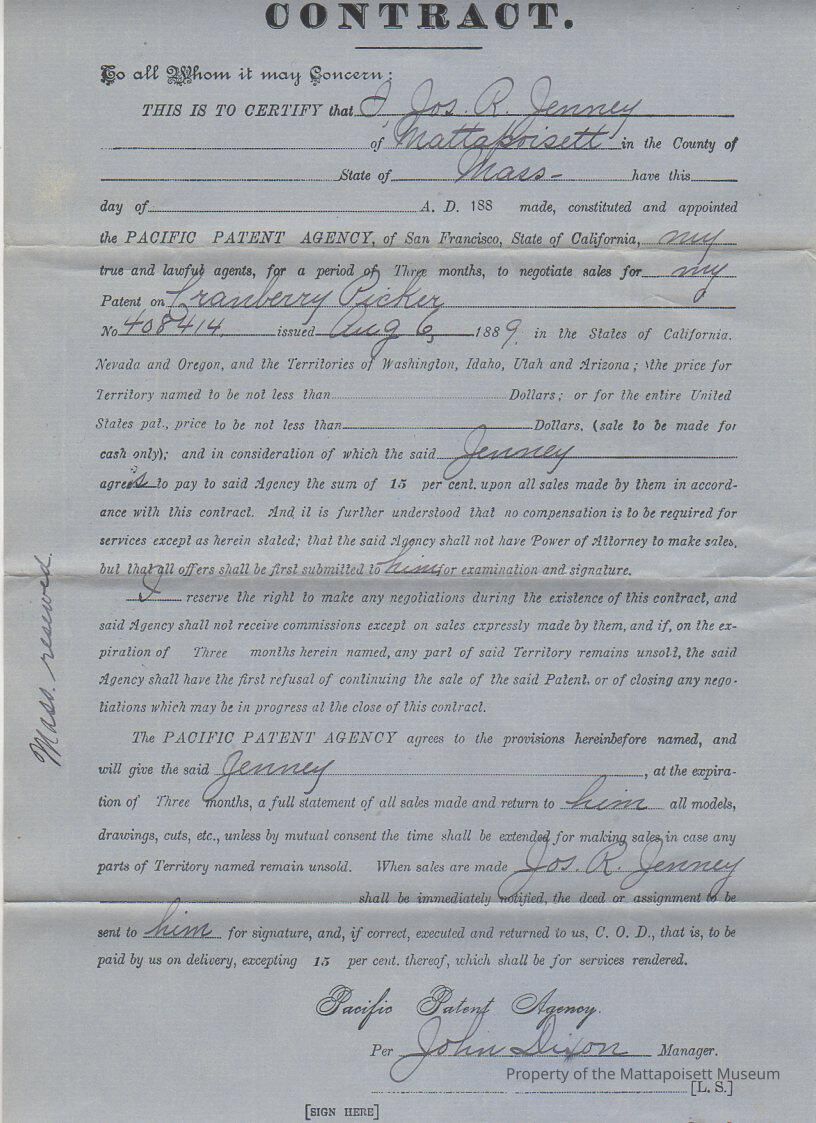 CONTRACT.
To all Whom it may Concern:
THIS IS TO CERTIFY that I, Jos. R. Jenney
of Mattapoisett in the County of
State of Mass- have this
day of A. D. 188 made, constituted and appointed
the PACIFIC PATENT AGENCY, of San Francisco, State of California, my
true and lawful agents, for a period of Three months, to negotiate sales for my
Patent on Cranberry Picker
No 408414, issued Aug 6, 1889, in the States of California.
Nevada and Oregon, and the Territories of Washington, Idaho, Utah and Arizona; the price for
Territory named to be not less than Dollars; or for the entire United
States pat., price to be not less than Dollars, (sale to be made for
cash only); and in consideration of which the said Jenney
agrees to pay to said Agency the sum of 15 per cent. upon all sales made by them in accord-
ance with this contract. And it is further understood that no compensation is to be required for
services except as herein stated; that the said Agency shall not have Power of Attorney to make sales,
but that all offers shall be first submitted to him for examination and signature.
I reserve the right to make any negotiations during the existence of this contract, and
said Agency shall not receive commissions except on sales expressly made by them, and if, on the ex-
piration of Three months herein named, any part of said Territory remains unsold, the said
Agency shall have the first refusal of continuing the sale of the said Patent, or of closing any nego-
tiations which may be in progress at the close of this contract.
Mass. reserved.
The PACIFIC PATENT AGENCY agrees to the provisions hereinbefore named, and
will give the said Jenney, at the expira-
tion of Three months, a full statement of all sales made and return to him all models,
drawings, cuts, etc., unless by mutual consent the time shall be extended for making sales in case any
parts of Territory named remain unsold. When sales are made Jos. R. Jenney
shall be immediately notified, the deed or assignment to be
sent to him for signature, and, if correct, executed and returned to us, C. O. D., that is, to be
paid by us on delivery, excepting 15 per cent. thereof, which shall be for services rendered.
Pacific Patent Agency.
Per John Dixon Manager.
Property of the Mattapoisett Museum
[L. S.]
[SIGN HERE]